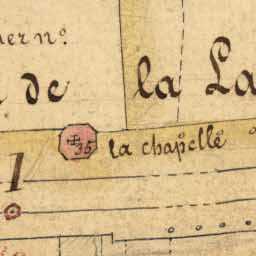 de la La
35 la chapelle
1